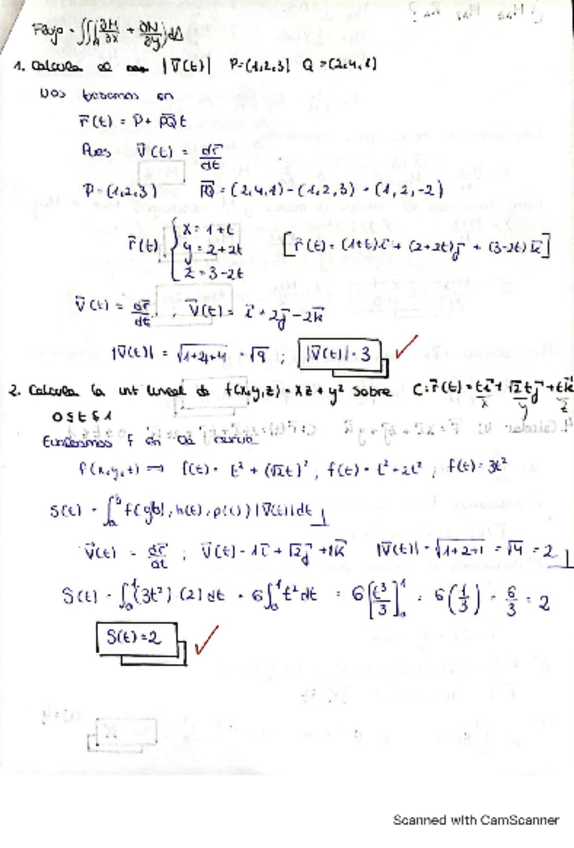 Flujo = ∬∫( ∂M/∂x + ∂N/∂y ) dA
1. Calcula el |V⃗(t)| P=(1,2,3) Q=(2,4,1)
Nos basamos en
r⃗(t) = P + P⃗Q t
Pues V⃗(t) = dr⃗/dt
P=(1,2,3) P⃗Q = (2,4,1)-(1,2,3) = (1,2,-2)
r⃗(t) { x = 1+t
y = 2+2t [r⃗(t) = (1+t)i⃗ + (2+2t)j⃗ + (3-2t)k⃗]
z = 3-2t
V⃗(t) = dr⃗/dt ; V⃗(t) = i⃗ + 2j⃗ - 2k⃗
|V⃗(t)| = √1+4+4 = √9 ; |V⃗(t)| = 3 ✓
2. Calcula la int lineal de f(x,y,z) = xz + y² sobre C: r⃗(t) = ti⃗ + √2 tj⃗ + tk⃗
x y z
0≤t≤1
f en la curva
f(t) = t² + (√2t)² ; f(t) = t² + 2t² ; f(t) = 3t²
S(t) = ∫ₐᵇ f(g(t), h(t), p(t)) |V⃗(t)| dt
V⃗(t) = dr⃗/dt ; V⃗(t) = 1i⃗ + √2j⃗ + 1k⃗ |V⃗(t)| = √1+2+1 = √4 = 2
S(t) = ∫₀¹ (3t²) (2) dt = 6∫₀¹ t² dt = 6[t³/3]₀¹ = 6(1/3) = 6/3 = 2
S(t) = 2 ✓
Scanned with CamScanner